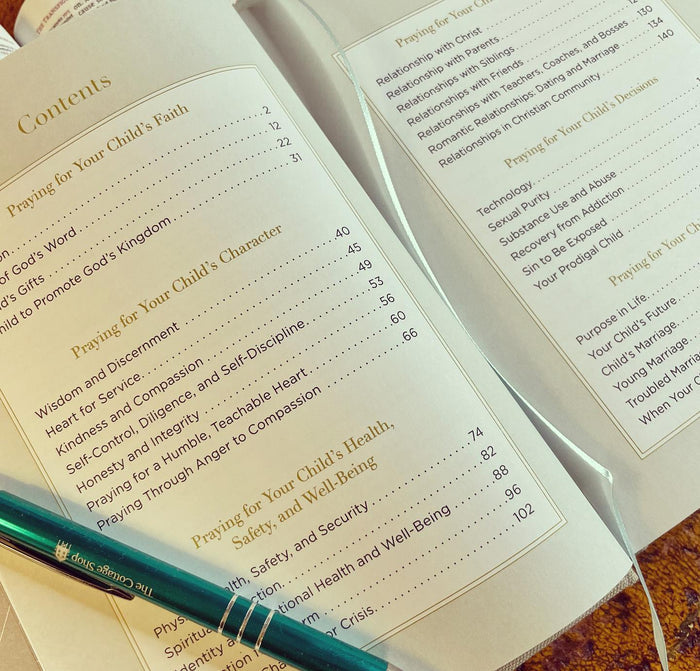 THE TRANSFIG
CAUSE
Contents
Praying for Your Child's Faith
on 2
of God's Word 12
d's Gifts 22
hild to Promote God's Kingdom 31
Praying for Your Child's Character
Wisdom and Discernment 40
Heart for Service 45
Kindness and Compassion 49
Self-Control, Diligence, and Self-Discipline 53
Honesty and Integrity 56
Praying for a Humble, Teachable Heart 60
Praying Through Anger to Compassion 66
Praying for Your Child's Health,
Safety, and Well-Being
Phys lth, Safety, and Security 74
Spiritual ction 82
Identity a tional Health and Well-Being 88
ation rm 96
Cha or Crisis 102
The Cottage Shop
Praying for Your Chi
Relationship with Christ
Relationship with Parents
Relationships with Siblings
Relationships with Friends 12
Relationships with Teachers, Coaches, and Bosses 130
Romantic Relationships: Dating and Marriage 134
Relationships in Christian Community 140
Praying for Your Child's Decisions
Technology
Sexual Purity
Substance Use and Abuse
Recovery from Addiction
Sin to Be Exposed
Your Prodigal Child
Praying for Your Ch
Purpose in Life
Your Child's Future
Child's Marriage
Young Marriage
Troubled Marria
When Your C